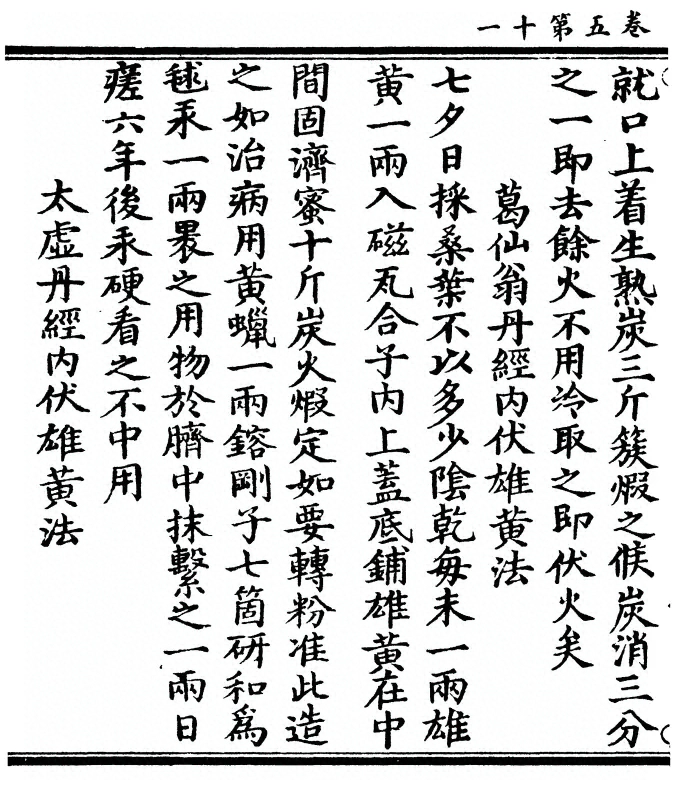 卷五第十一
就口上着生熟炭三斤簇煅之候炭消三分
之一即去餘火不用冷取之即伏火矣
葛仙翁丹經內伏雄黃法
七夕日採桑葉不以多少陰乾每末一兩雄
黃一兩入磁瓦合子內上蓋底鋪雄黃在中
間固濟蜜十斤炭火煅定如要轉粉准此造
之如治病用黃蠟一兩鎔剛子七箇研和為
毬汞一兩褁之用物於臍中抹繫之一兩日
瘥六年後汞硬看之不中用
太虛丹經內伏雄黃法